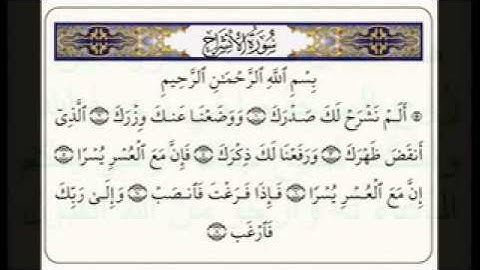 سُورَةُ الانْشِرَاح
بِسْمِ ٱللَّهِ ٱلرَّحْمَٰنِ ٱلرَّحِيمِ
أَلَمْ نَشْرَحْ لَكَ صَدْرَكَ ۝١ وَوَضَعْنَا عَنكَ وِزْرَكَ ۝٢ ٱلَّذِىٓ
أَنقَضَ ظَهْرَكَ ۝٣ وَرَفَعْنَا لَكَ ذِكْرَكَ ۝٤ فَإِنَّ مَعَ ٱلْعُسْرِ يُسْرًا ۝٥
إِنَّ مَعَ ٱلْعُسْرِ يُسْرًا ۝٦ فَإِذَا فَرَغْتَ فَٱنصَبْ ۝٧ وَإِلَىٰ رَبِّكَ
فَٱرْغَب ۝٨